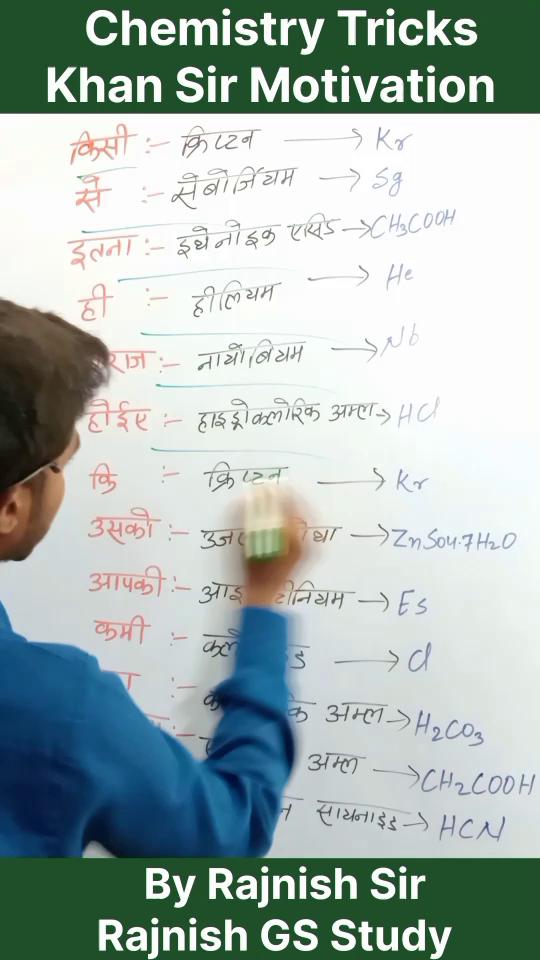 Chemistry Tricks
Khan Sir Motivation
किसी :- क्रिप्टन → Kr
से :- सेबोर्जियम → Sg
इतना :- इथेनोइक एसिड → CH3COOH
ही :- हीलियम → He
राज :- नायोबियम → Nb
होईए :- हाइड्रोक्लोरिक अम्ल → HCl
कि :- क्रिप्टन → Kr
उसको :- → ZnSO4.7H2O
आपकी :- → Es
कमी :- → Cl
:- अम्ल → H2CO3
:- अम्ल → CH2COOH
सायनाइड → HCN
By Rajnish Sir
Rajnish GS Study